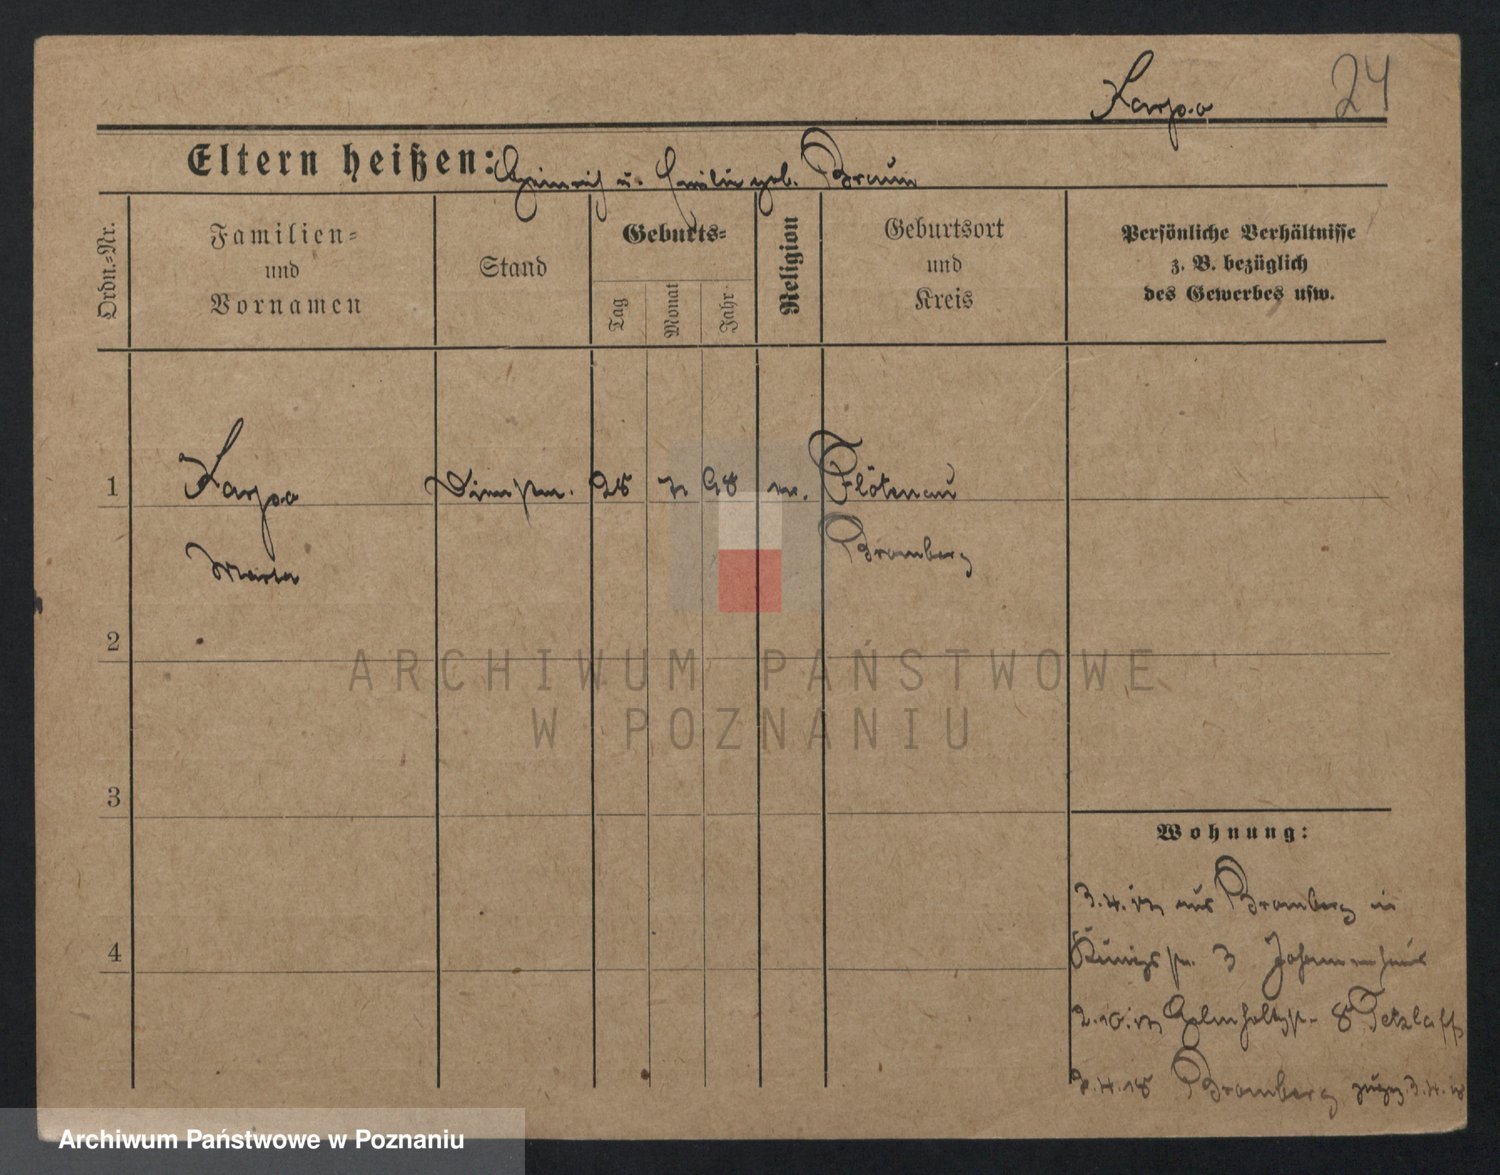 Karpa 24
Eltern heißen: Heinrich u. Emilie geb. Braun
Ordn.-Nr.
Familien-
und
Vornamen
Stand
Geburts-
Tag
Monat
Jahr
Religion
Geburtsort
und
Kreis
Persönliche Verhältnisse
z. B. bezüglich
des Gewerbes usw.
1 Karpa 25 98 Flötenau
Marta Bromberg
2
3
4
Wohnung:
3.4.17 aus Bromberg in
Königstr. 3 Johannenhaus
2.10.17 8 Tetzlaff
2.4.18 Bromberg
ARCHIWUM PAŃSTWOWE
W POZNANIU
Archiwum Państwowe w Poznaniu